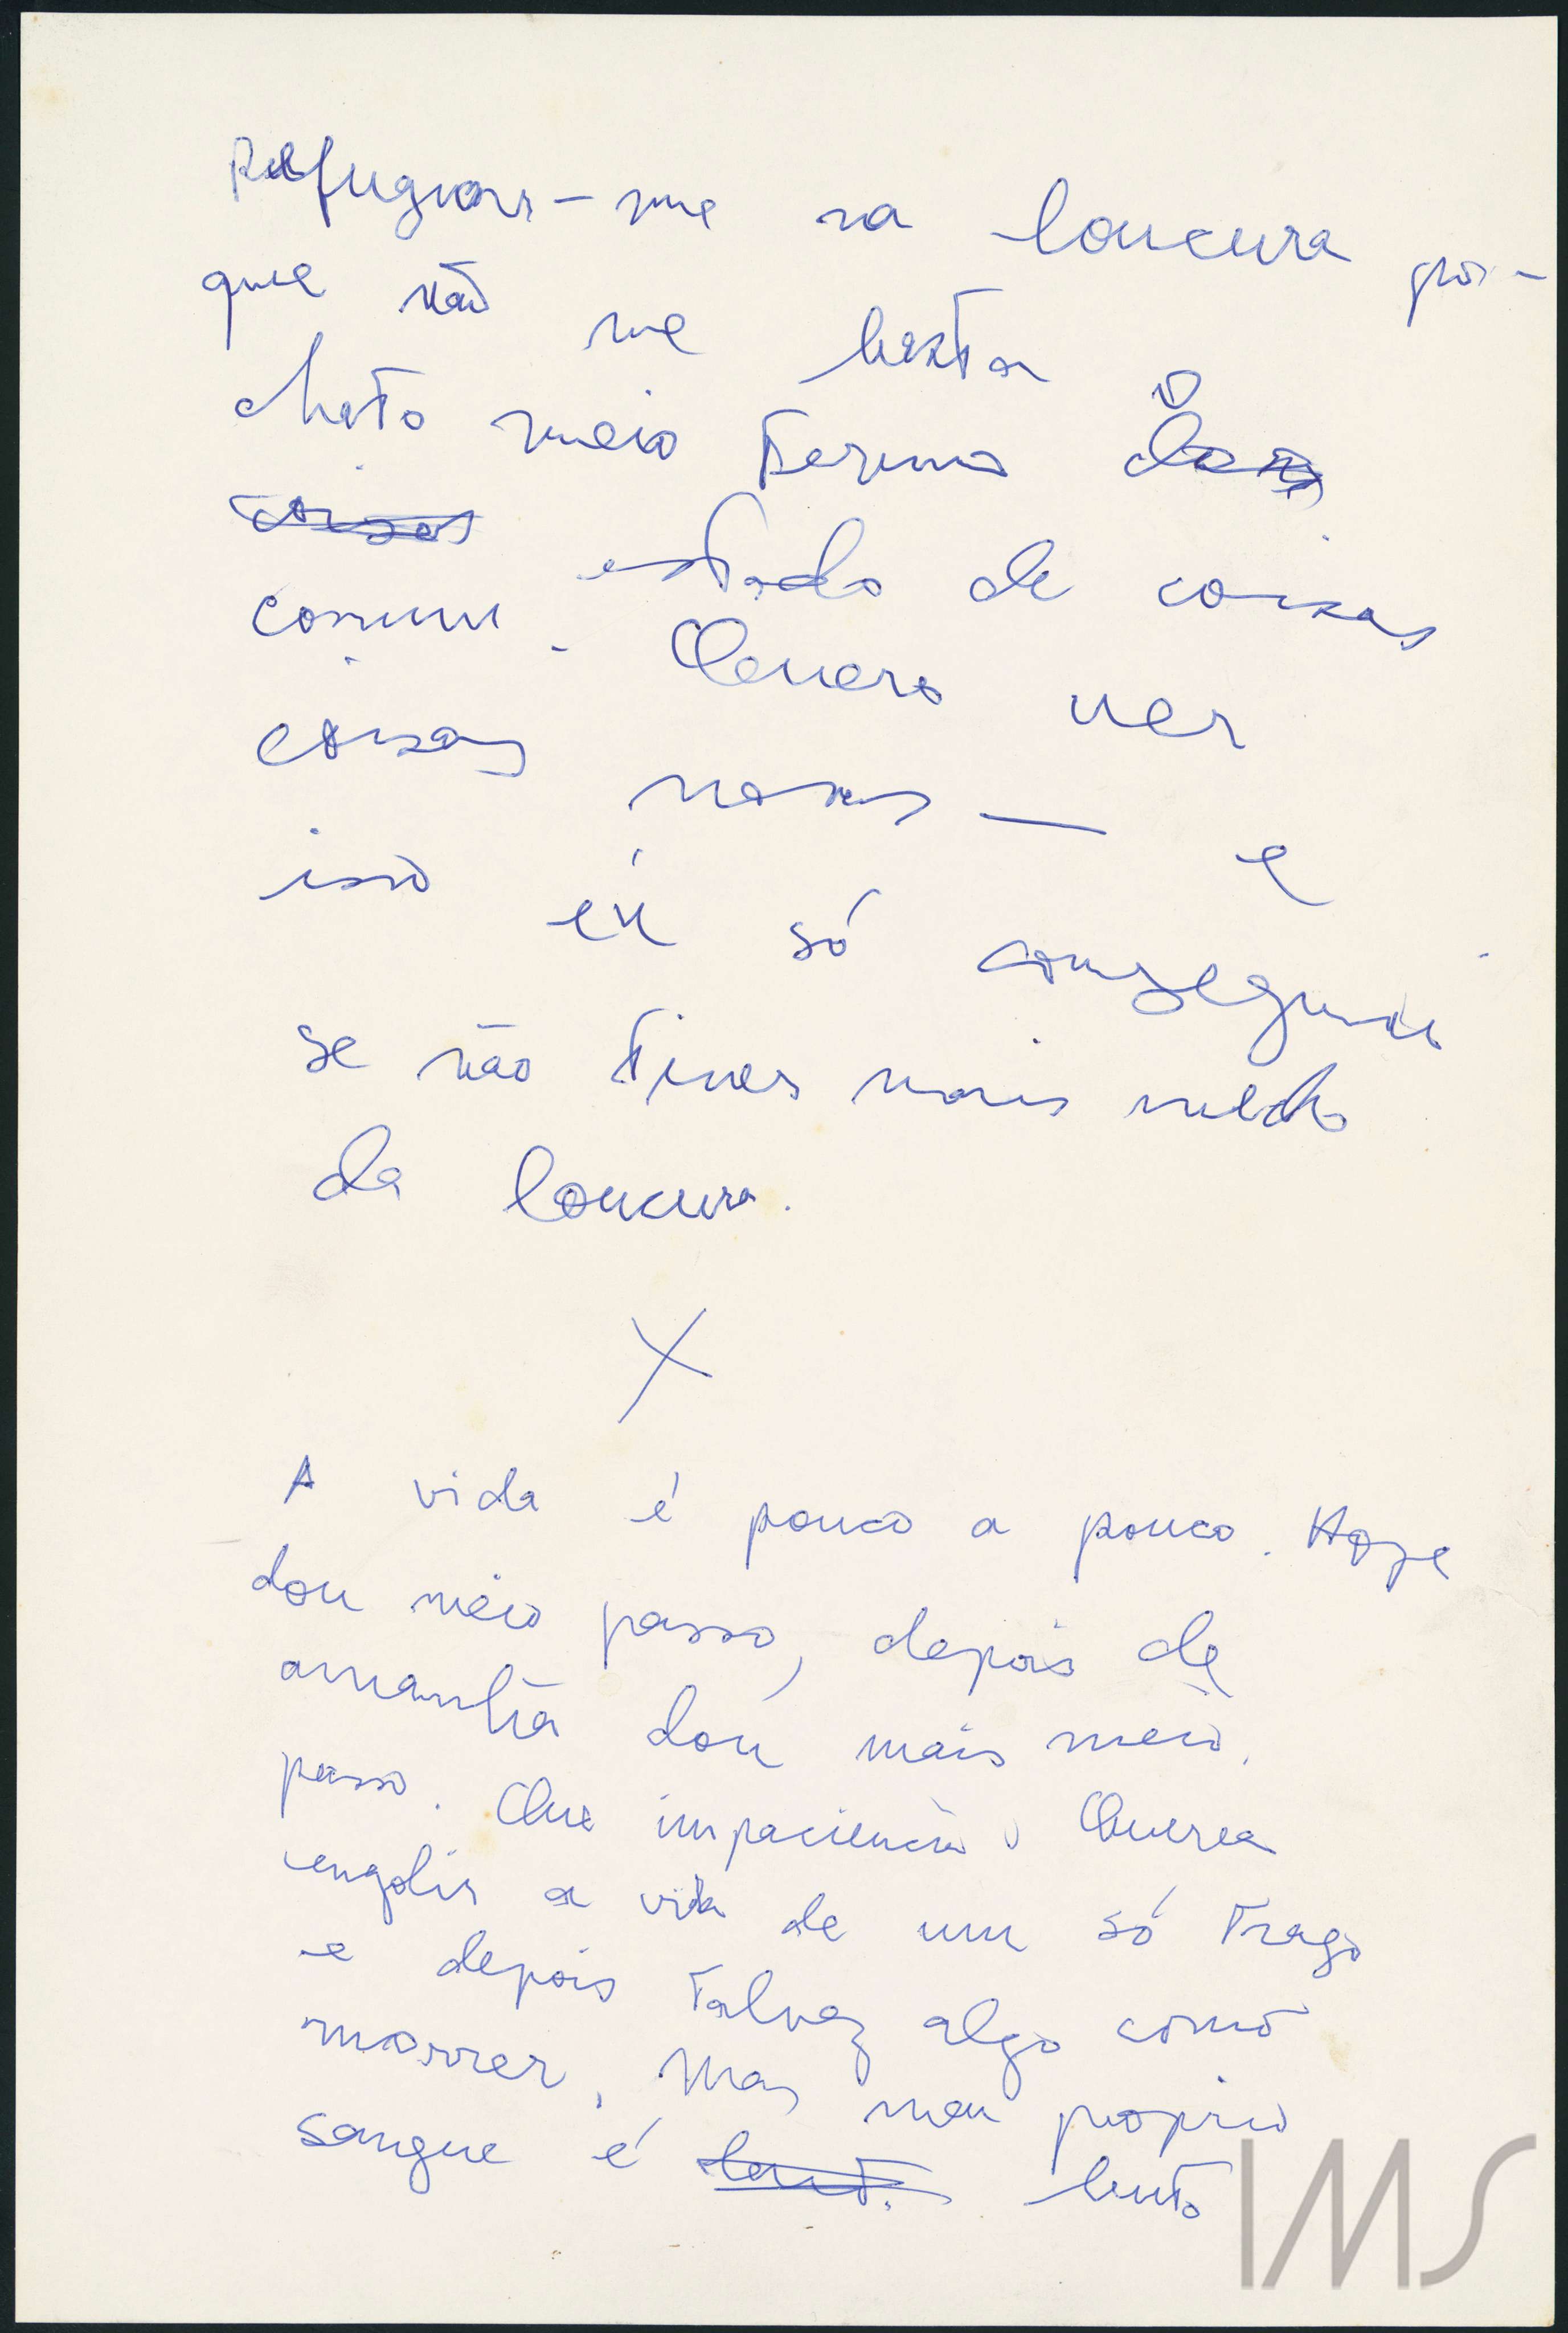 Refugiar-me na loucura por-
que não me resta o
chato meio termo ~~das~~
~~coisas~~ estado de coisas
comum. Quero ver
coisas novas — e
isso eu só conseguirei
se não tiver mais medo
da loucura.
X
A vida é pouco a pouco. Hoje
dou meio passo, depois de
amanhã dou mais meio
passo. Que impaciencia. Queria
engolir a vida de um só trago
e depois talvez algo como
morrer. Mas meu proprio
sangue é ~~lent.~~ lento
IMS